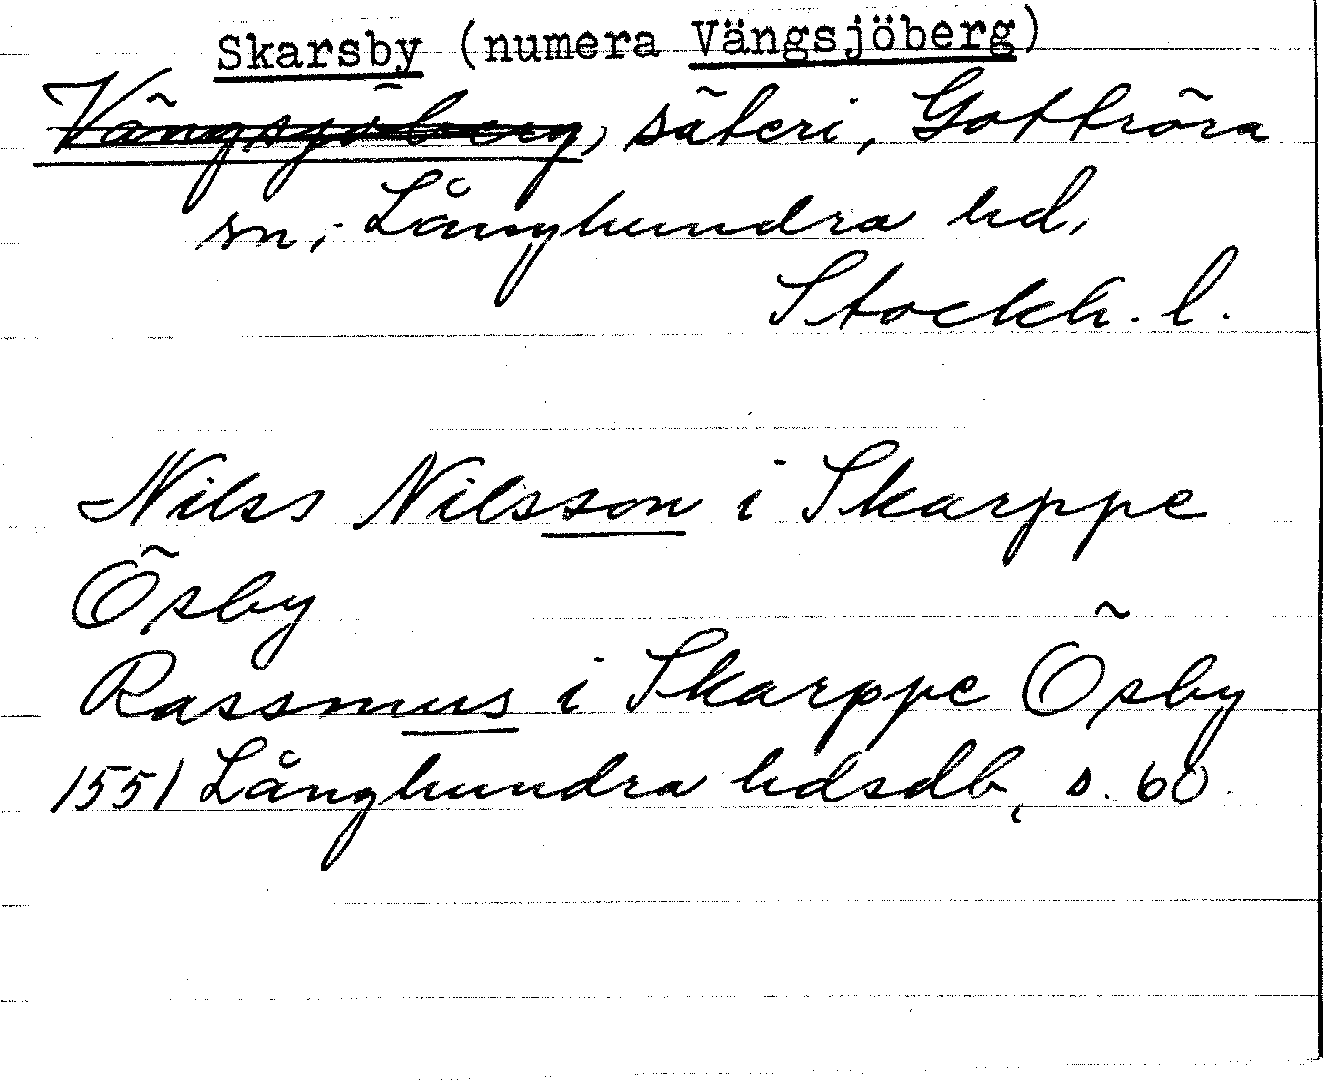 Skarsby (numera Vängsjöberg)
Vängsjöberg, säteri, Gottröra
sn, Långhundra hd,
Stockh. l.
Nilss Nilsson i Skarppe
Ösby
Rassmus i Skarppe Ösby
1551 Långhundra hdsdb, s. 60